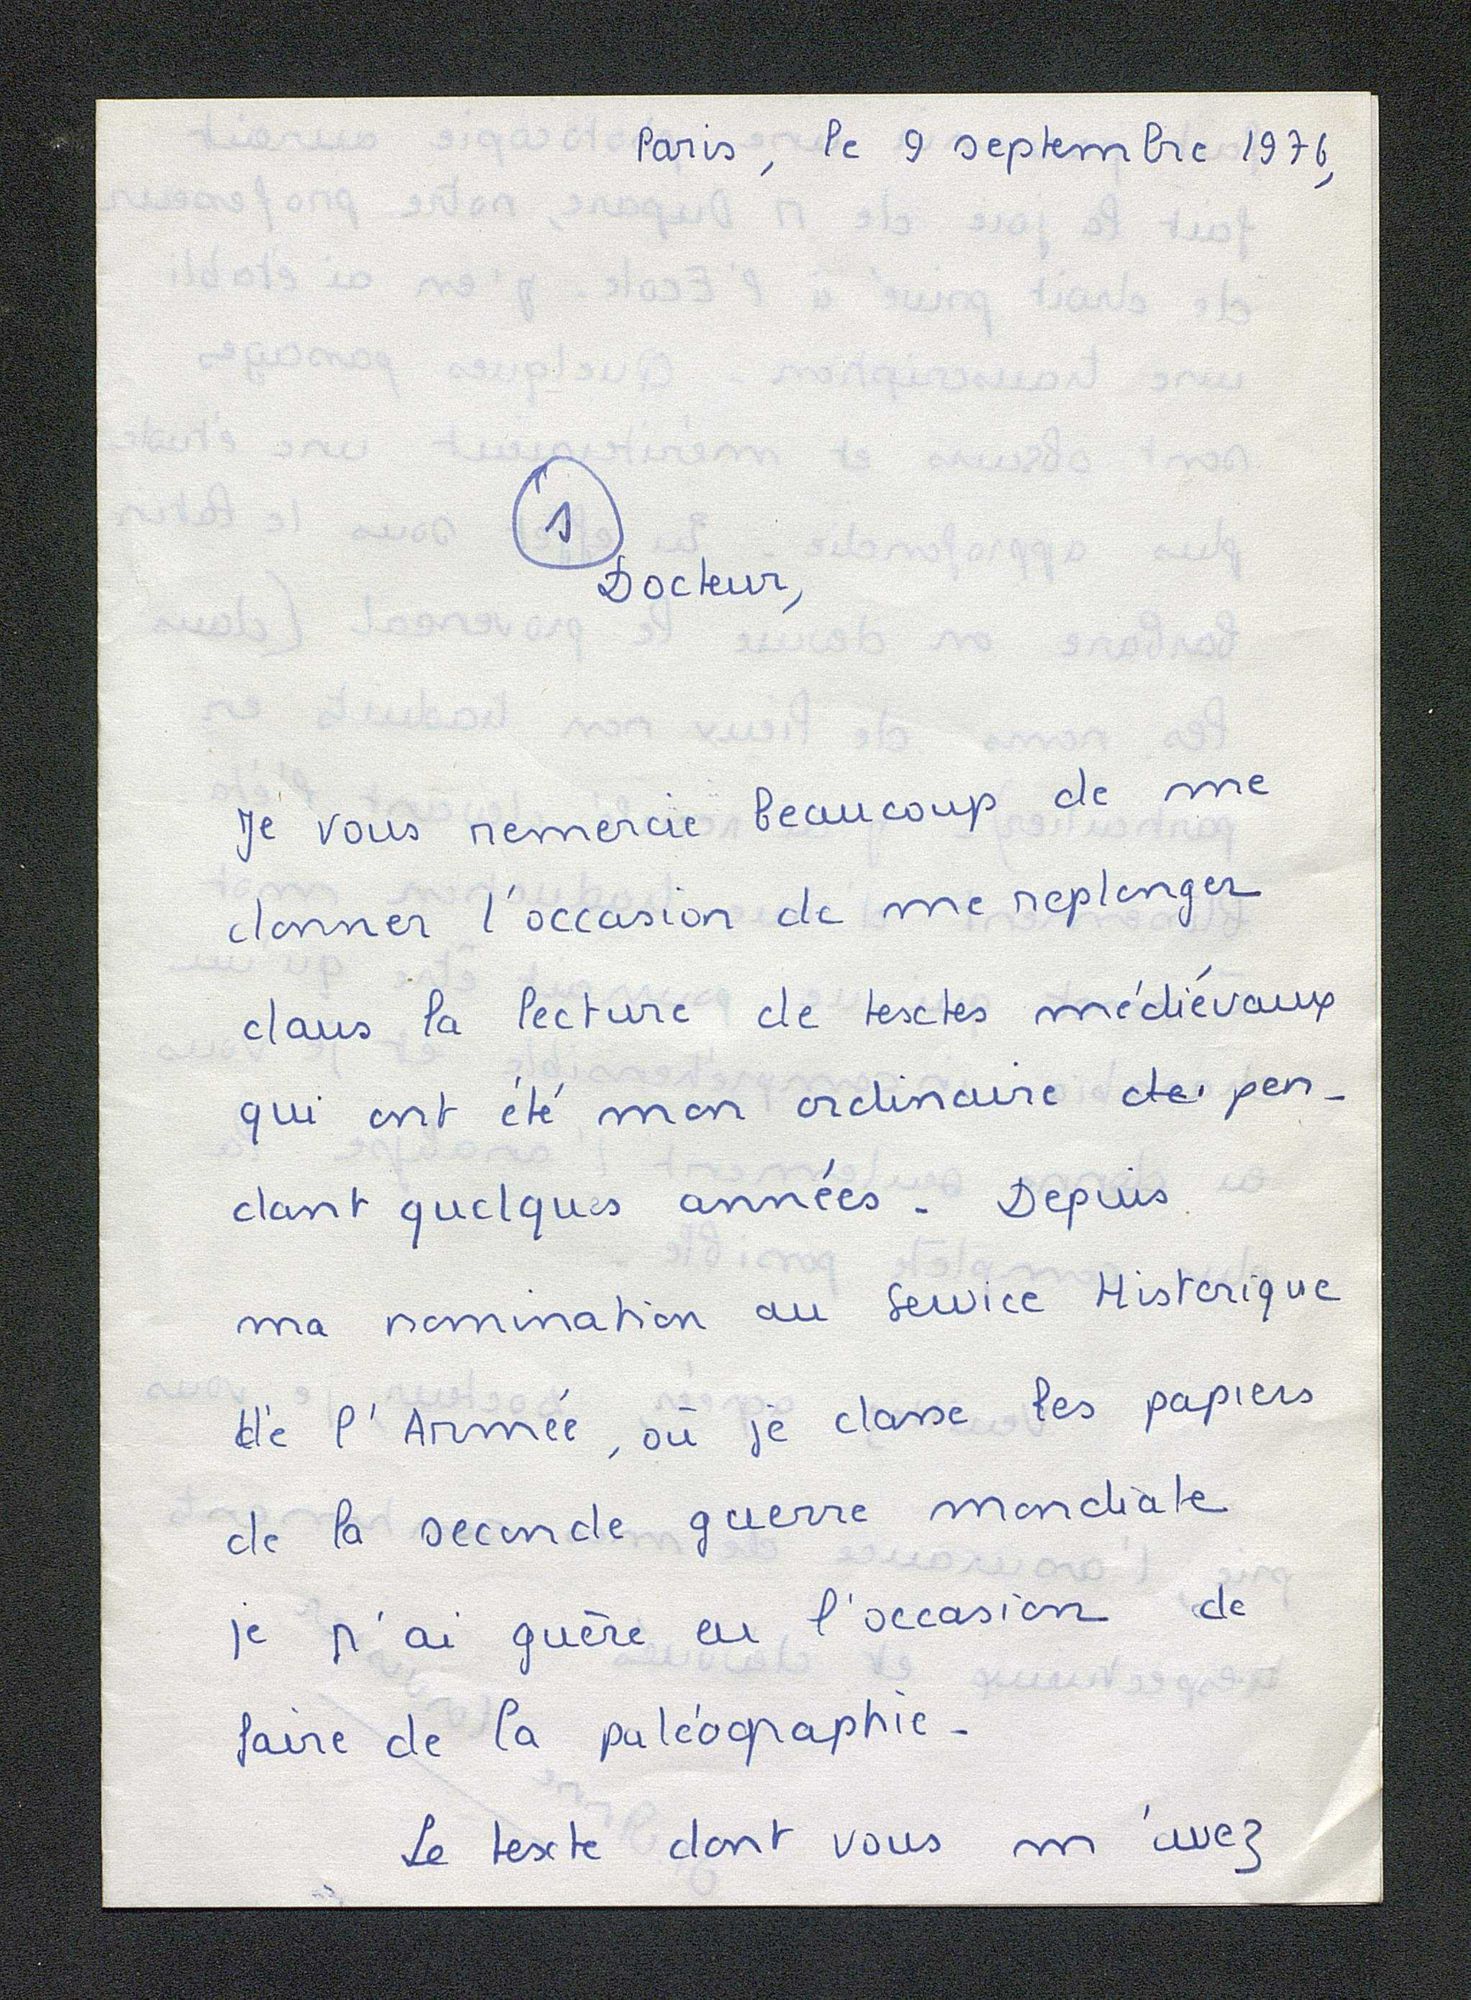 Paris, le 9 septembre 1976,
1
Docteur,
Je vous remercie beaucoup de me
donner l'occasion de me replonger
dans la lecture de textes médiévaux
qui ont été mon ordinaire de pen-
dant quelques années. Depuis
ma nomination au Service Historique
de l'Armée, où je classe les papiers
de la seconde guerre mondiale
je n'ai guère eu l'occasion de
faire de la paléographie.
Le texte dont vous m'avez